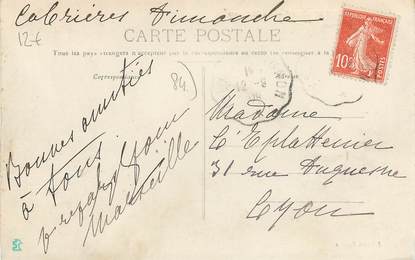 Cabrières Dimanche
12€
CARTE POSTALE
Tous les pays étrangers n'acceptent pas la correspondance au recto (se renseigner à la
Correspondance
Adresse
RÉPUBLIQUE FRANÇAISE
10c
POSTES
84
Bonnes amitiés
à tous
pour
Marseille
Madame
L'Eplattenier
31 rue Duquesne
Lyon